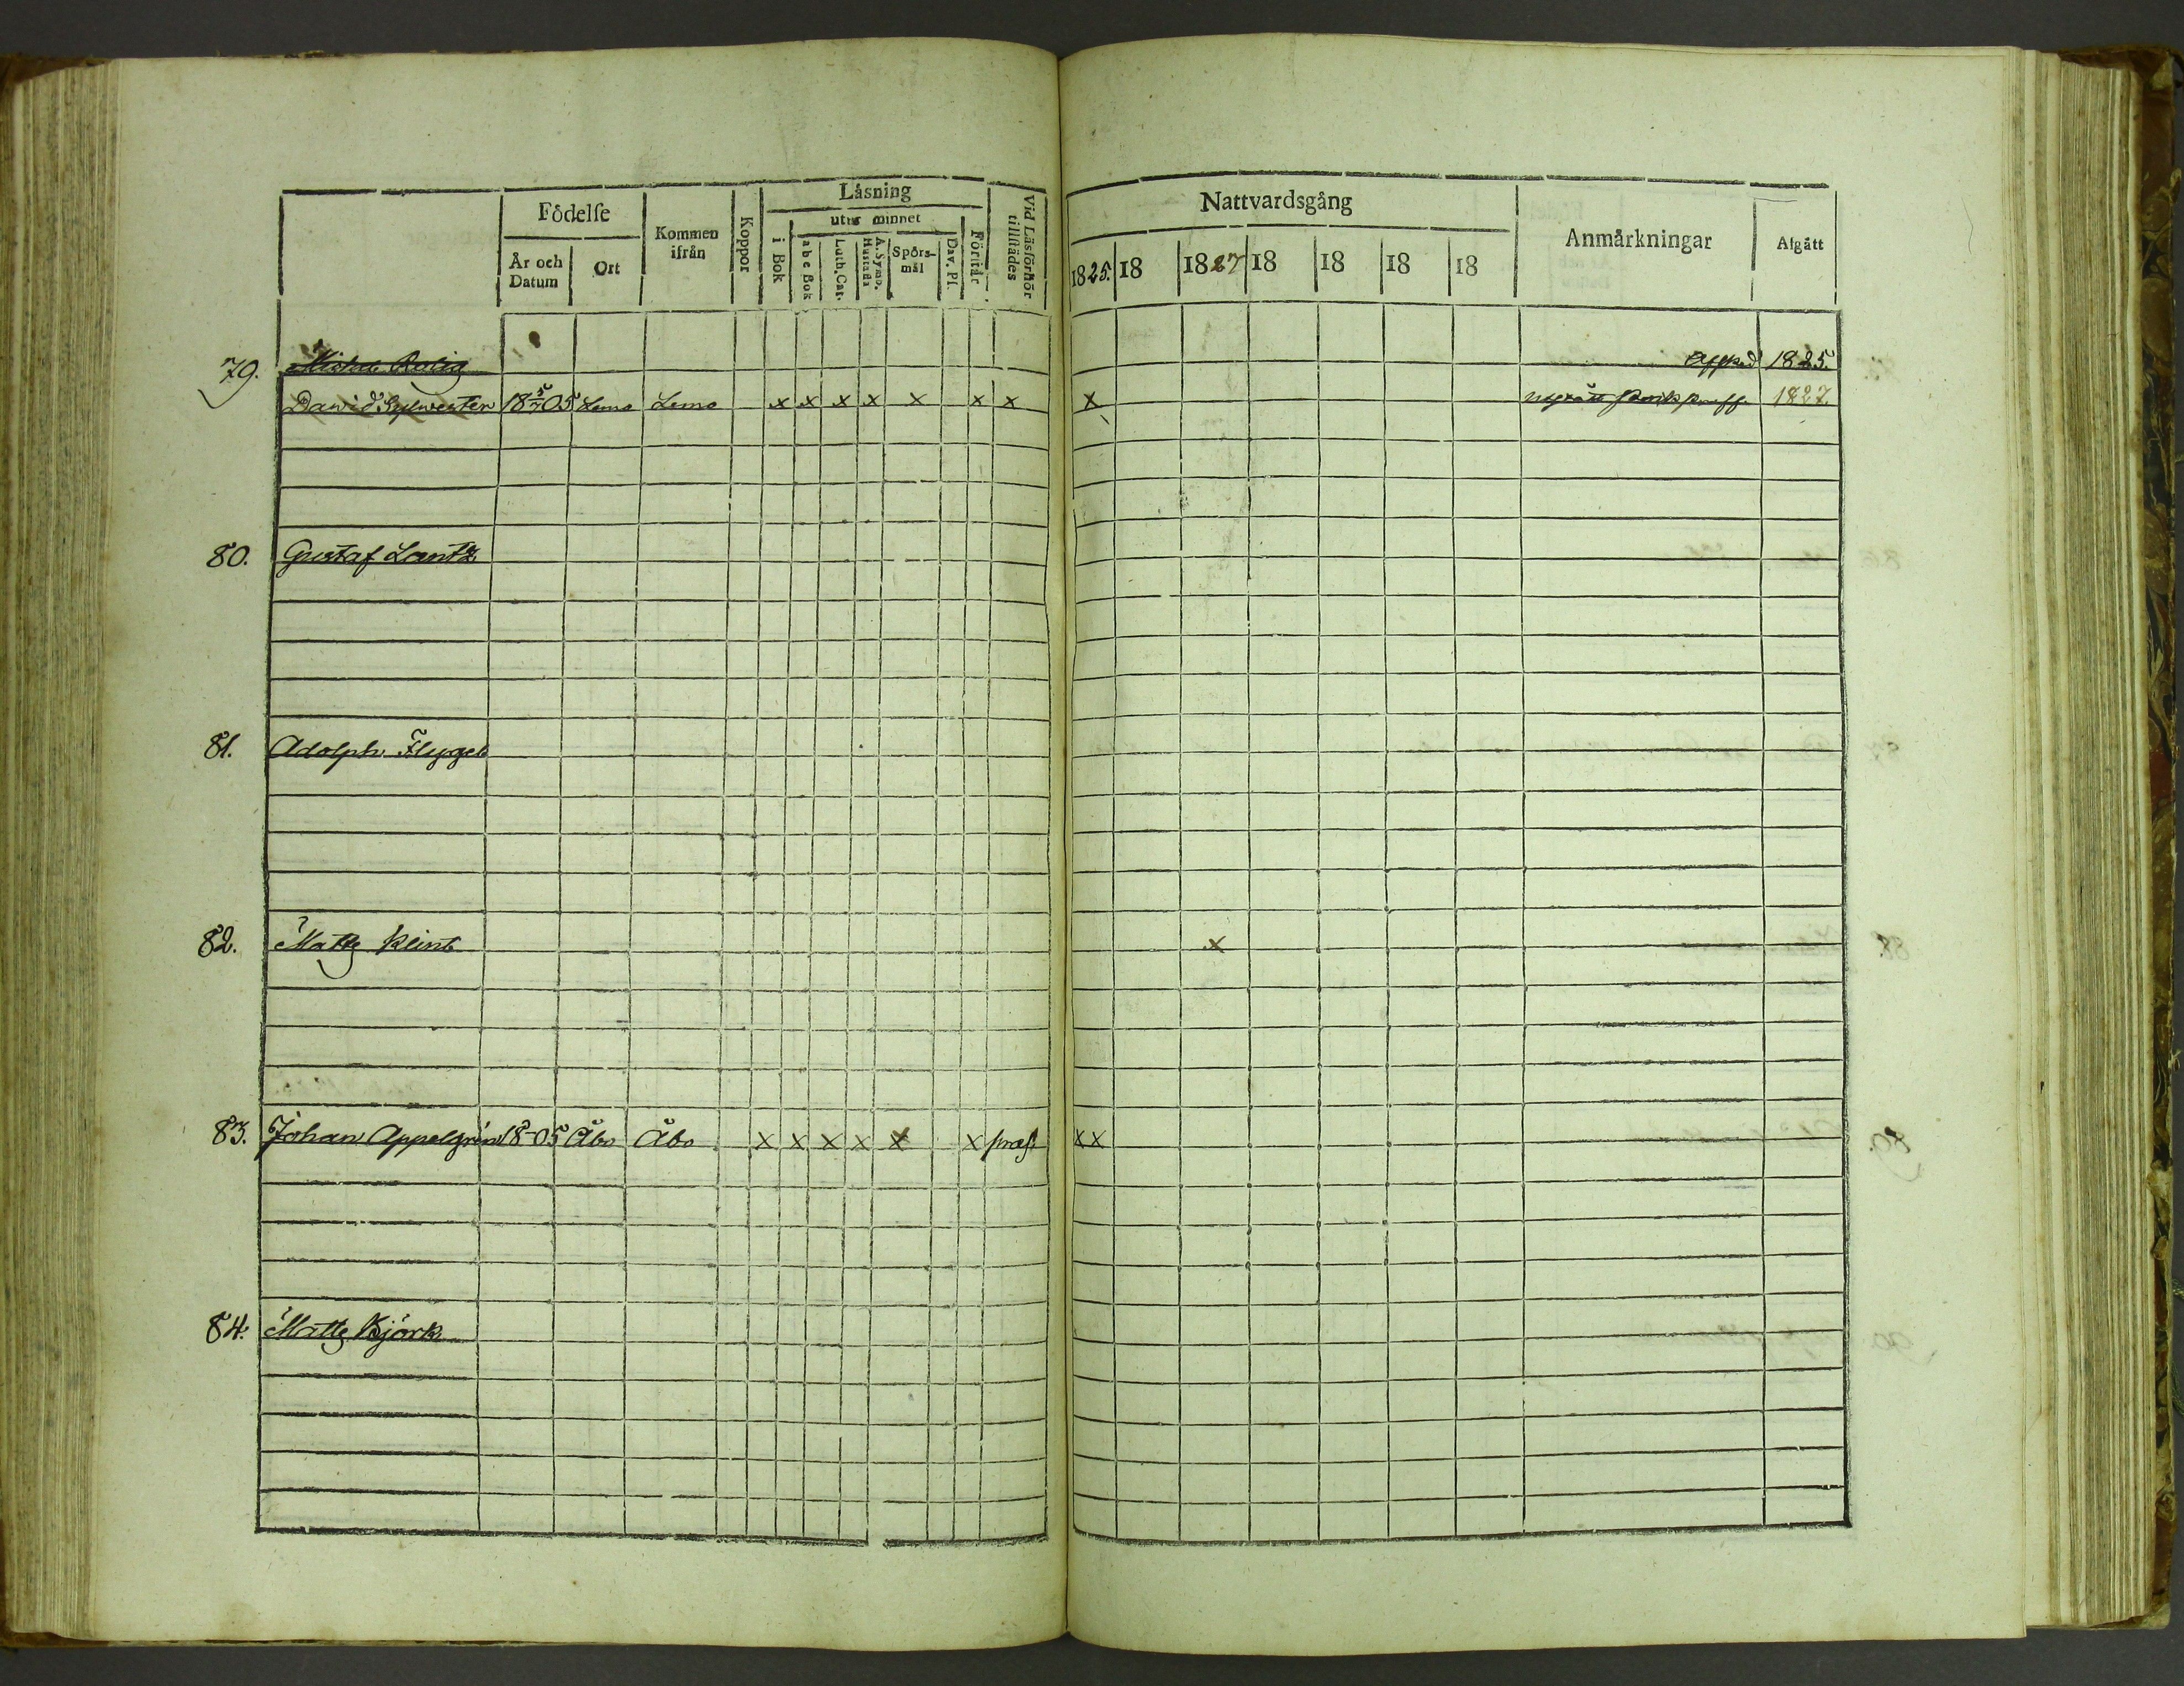 Födelse
Kommen ifrån
Koppor
Läsning
Vid Läsförhör tillstädes
År och Datum
Ort
i Bok
utur minnet
Förstår
a b c Bok
Luth. Cat.
A. Symb. Hustafla
Spörsmål
Dav. Ps.
Nattvardsgång
Anmärkningar
Afgått
1825. 18 1827 18 18 18 18
79. 1825.
Dawid Sylvester 18 5/7 05 Lemo Lemo x x x x x x x x 1827.
80. Gustaf Lantz
81. Adolph Flygel
82. Matts Klint x
83. Johan Appelgrén 18-05 Åbo Åbo x x x x x x præs x x
84. Matts Björk